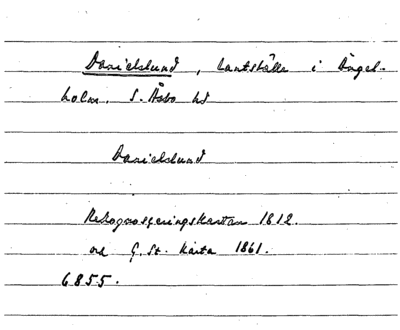 Danielslund, lantställe i Ängel-
holm. S. Åsbo hd
Danielslund
Rekognosceringskartan 1812.
och G. St. karta 1861.
6855.